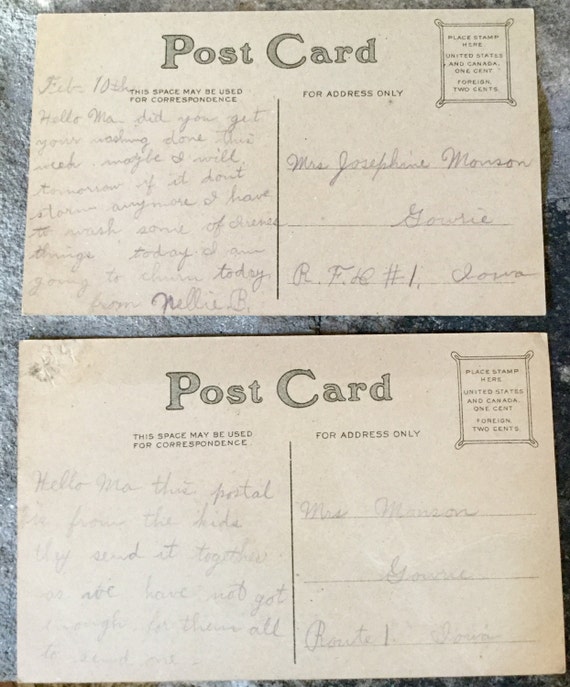 Post Card
PLACE STAMP
HERE
UNITED STATES
AND CANADA,
ONE CENT
FOREIGN,
TWO CENTS.
THIS SPACE MAY BE USED
FOR CORRESPONDENCE
FOR ADDRESS ONLY
Feb. 10th
Hello Ma did you get
your washing done this
week. maybe I will
tomorrow if it dont
storm anymore I have
to wash some of Irenes
things today I am
going to churn today.
from Nellie B.
Mrs Josephine Monson
Gowrie
R. F. D #1, Iowa
Post Card
PLACE STAMP
HERE
UNITED STATES
AND CANADA,
ONE CENT
FOREIGN,
TWO CENTS.
THIS SPACE MAY BE USED
FOR CORRESPONDENCE
FOR ADDRESS ONLY
Hello Ma this postal
is from the kids
they send it together
as we have not got
enough for them all
to send one.
Mrs Monson
Gowrie
Route 1. Iowa